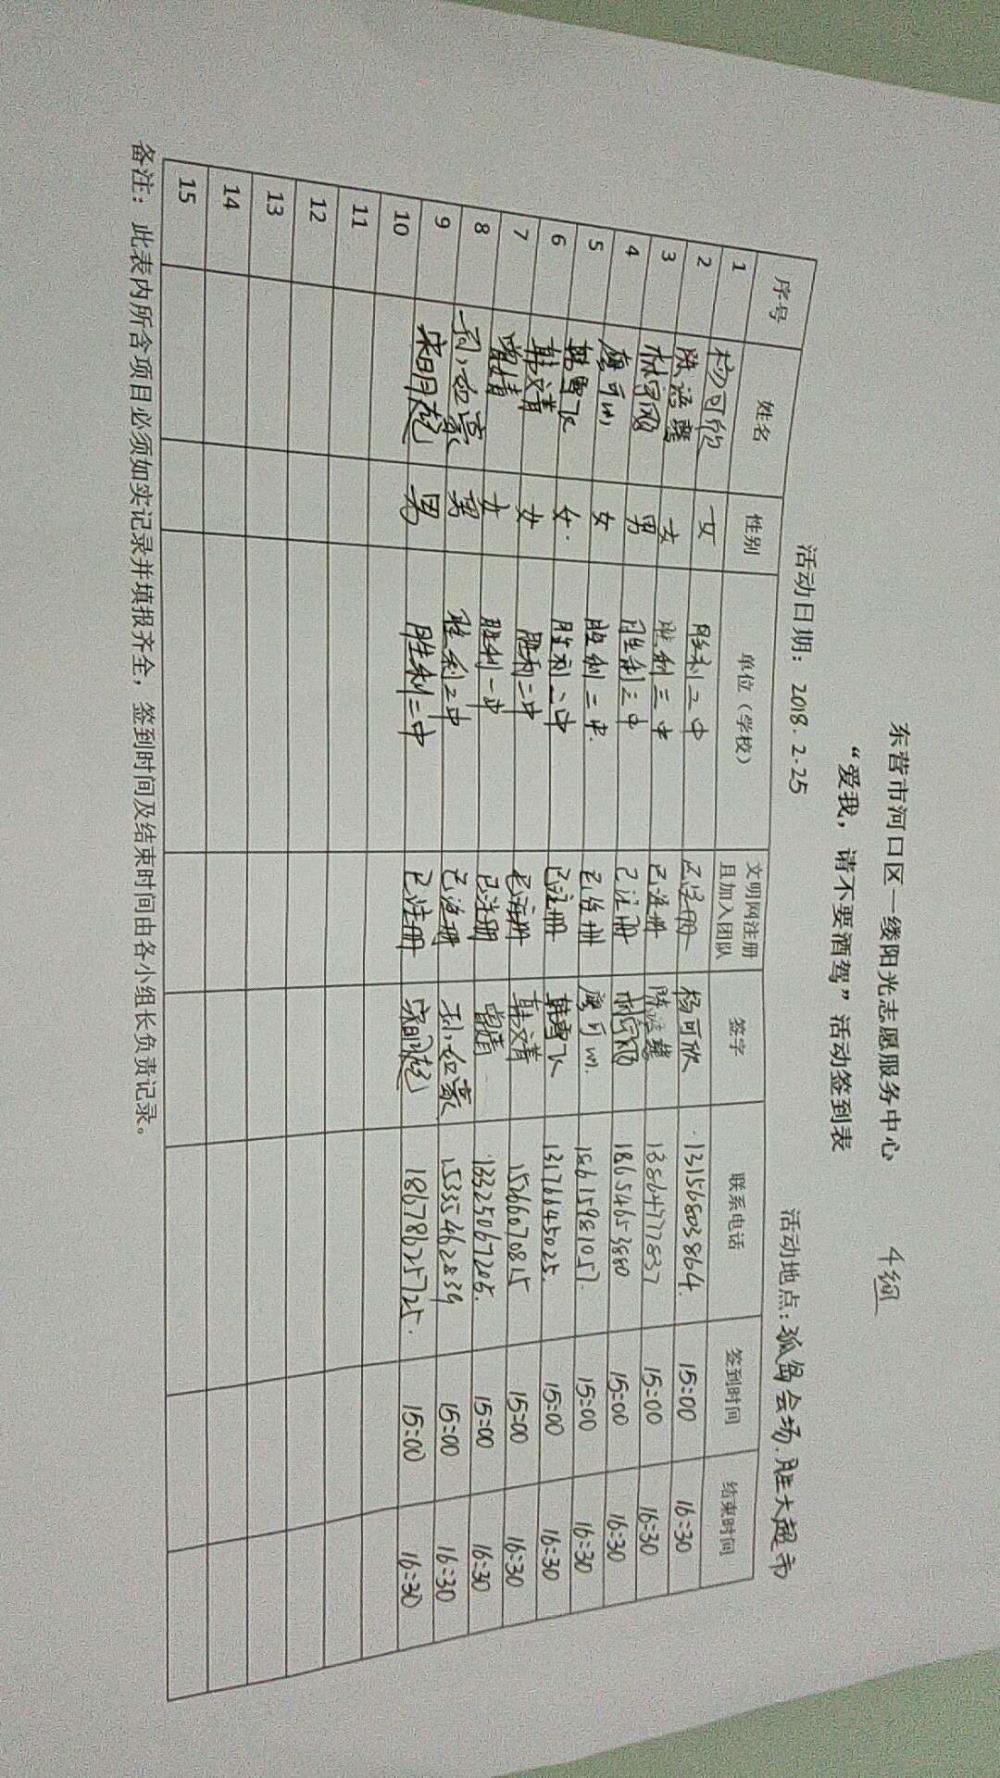 东营市河口区一缕阳光志愿服务中心 4组
“爱我，请不要酒驾”活动签到表
活动日期：2018.2.25 活动地点：孤岛会场.胜大超市
序号 姓名 性别 单位（学校） 文明网注册且加入团队 签字 联系电话 签到时间 结束时间
1 杨可欣 女 胜利二中 已注册 杨可欣 13156803864 15:00 16:30
2 女 胜利三中 已注册 13864777837 15:00 16:30
3 男 胜利三中 已注册 18654653880 15:00 16:30
4 女 胜利二中. 已注册 15615981057. 15:00 16:30
5 韩雪飞 女. 胜利二中 已注册 韩雪飞 13176645025. 15:00 16:30
6 韩文青 女 胜利二中 已注册 韩文青 15:00 16:30
7 曾婧 女 胜利一中 已注册 曾婧 13325067205. 15:00 16:30
8 孙如豪 男 胜利二中 已注册 孙如豪 15335462839 15:00 16:30
9 宋明起 男 胜利二中 已注册 宋明起 18678625725. 15:00 16:30
10
11
12
13
14
15
备注：此表内所含项目必须如实记录并填报齐全，签到时间及结束时间由各小组长负责记录。